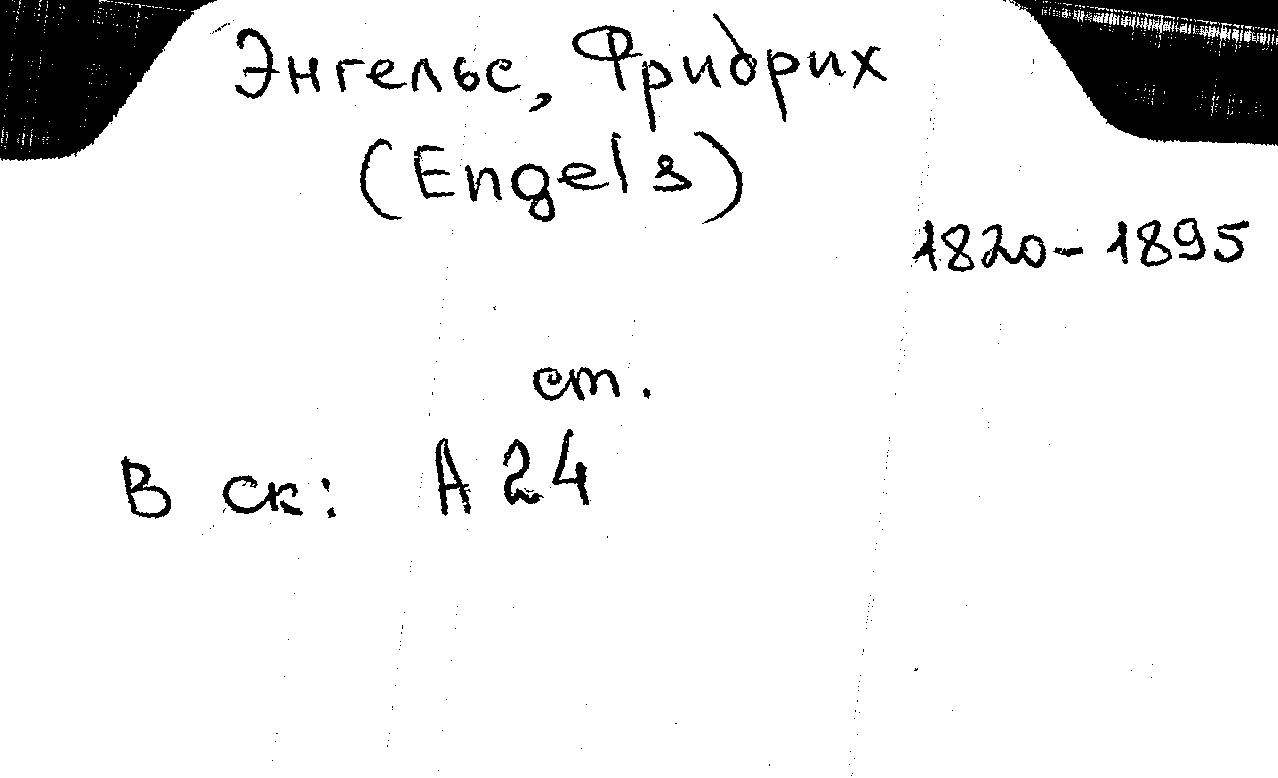 Энгельс, Фридрих
(Engels)
1820-1895
ст.
В ск: А 24